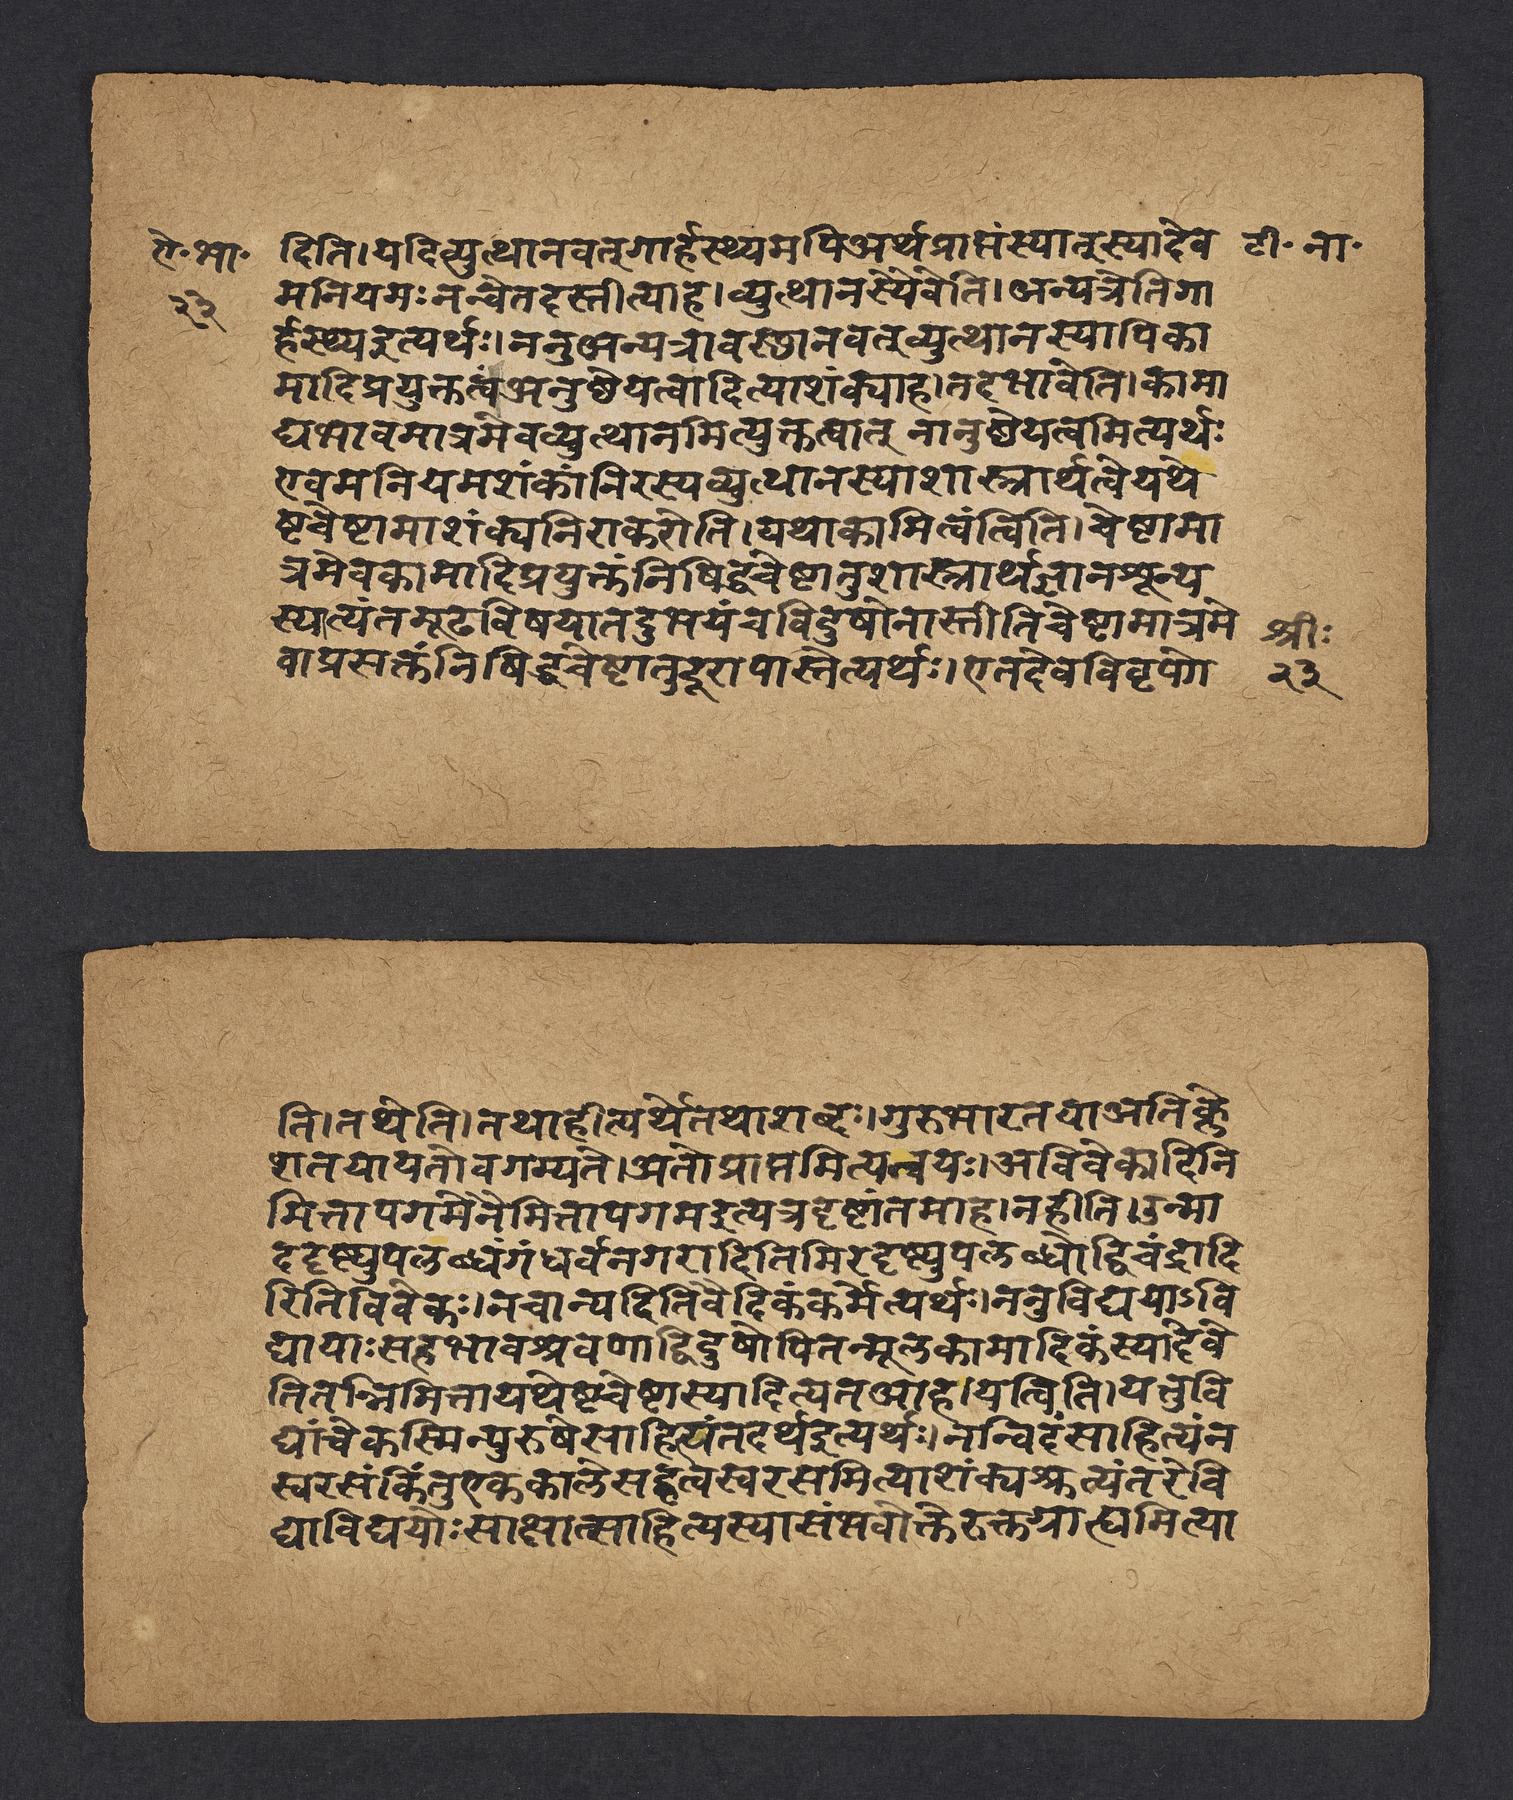 ऐ॰भा॰ दिति।यदिव्युत्थानवत्गार्हस्थ्यमपिअर्थप्राप्तंस्यात्स्यादेव टी॰ना॰
२३ मनियमःनन्वेतदस्तीत्याह।व्युत्थानस्यैवेति।अन्यत्रेतिगा
र्हस्थ्यइत्यर्थः।ननुअन्यत्रावस्थानवत्व्युत्थानस्यापिका
मादिप्रयुक्तत्वंअनुष्ठेयत्वादित्याशंक्याह।तदभावेति।कामा
द्यभावमात्रमेवव्युत्थानमित्युक्तत्वात् नानुष्ठेयत्वमित्यर्थः
एवमनियमशंकांनिरस्यव्युत्थानस्याशास्त्रार्थत्वेयथे
ष्टचेष्टामाशंक्यनिराकरोति।यथाकामित्वंत्विति।चेष्टामा
त्रमेवकामादिप्रयुक्तंनिषिद्धचेष्टातुशास्त्रार्थज्ञानशून्य
स्यात्यंतमूढविषयातदुभयंचविदुषोनास्तीतिचेष्टामात्रमे श्रीः
वाप्रसक्तंनिषिद्धचेष्टातुदूरापास्तेत्यर्थः।एतदेवविवृणो २३
ति।तथेति।तथाहीत्यर्थेतथाशब्दः।गुरुभारतयाअतिक्ले
शतयायतोवगम्यते।अतोप्राप्तमित्यन्वयः।अविवेकादिनि
मित्तापगमेनैमित्तापगमइत्यत्रदृष्टांतमाह।नहीति।उन्मा
ददृष्ट्युपलब्धंगंधर्वनगरादितिमिरदृष्ट्युपलब्धोद्विचंद्रादि
रितिविवेकः।नचान्यदितिवैदिकंकर्मेत्यर्थः।ननुविद्ययाऽवि
द्यायाःसहभावश्रवणाद्विदुषोपितन्मूलकामादिकंस्यादेवे
तितन्निमित्तायथेष्टचेष्टास्यादित्यतआह।यत्विति।यत्तुवि
द्यांचैकस्मिन्पुरुषेसाहित्यंतदर्थइत्यर्थः।नन्विदंसाहित्यंन
स्वरसंकिंतुएककालेसहत्वस्वरसमित्याशंक्यश्रुत्यंतरेवि
द्याविद्ययोःसाक्षात्साहित्यस्यासंभवोक्तेरुक्तमाह्यमित्या